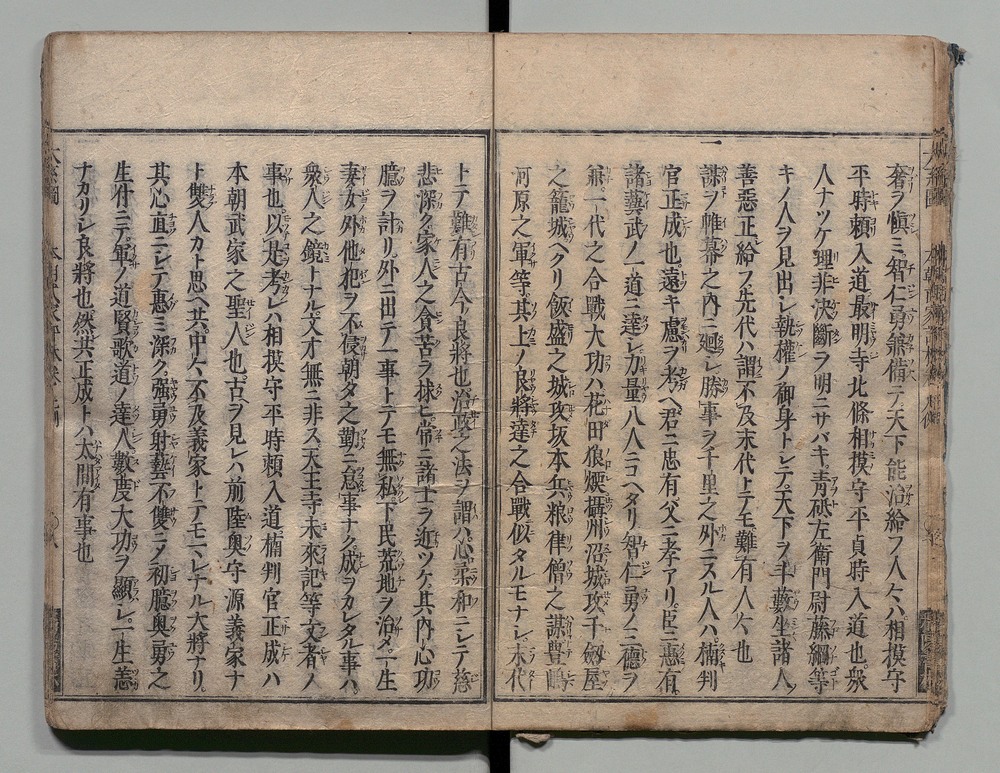 奢ヲ愼ミ智仁勇兼備テ天下能治給フ人々ハ相摸守
平時頼入道最明寺北條相摸守平貞時入道也衆
人ナツケ理非決斷ヲ明ニサバキ青砥左衛門尉藤綱等
キノ人ヲ見出シ執權ノ御身トシテ天下ヲ斗藪坐諸人
善惡正給フ先代ハ謂不及末代トテモ難有人々也
謀ヲ帷幕之内ニ廻シ勝事ヲ千里之外ニスル人ハ楠判
官正成也遠キ慮ヲ考ヘ君ニ忠有父ニ孝アリ臣ニ惠有
諸藝武ノ一道ニ達シ力量八人ニコヘタリ智仁勇ノ三德ヲ
兼一代之合戰大功ハ花田狼烟攝州沼城攻千劔屋
之籠城ヘクリ飯盛之城攻坂本兵粮律僧之謀豐嶋
河原之軍等其上ノ良將達之合戰似タルモナシ末代
トテ難有古今ノ良將也治政之法ヲ謂ハ心柔和ニシテ慈
悲深ク家人之貪苦ヲ捄ヒ常ニ諸士ヲ近ツケ其内心功
臆ヲ計リ外ニ出テ一事トテモ無私下民荒地ヲ治メ一生
妻女外他犯ヲ不侵朝夕之勤ニ怠事ナク成ヲカレタル事ハ
衆人之鏡トナル文才無ニ非ス天王寺未來記等文者ノ
事也以是考レハ相摸守平時頼入道楠判官正成ハ
本朝武家之聖人也古ヲ見レハ前陸奥守源義家ナ
ト雙人カト思ヘ共中々不及義家トテモ一トシテル大將ナリ
其心直ニシテ惠ミ深ク強勇射藝不雙ニメ初臆奥勇之
生付ニテ軍ノ道賢歌道ノ達人數度大功ヲ顯シ一生恙
ナカリシ良將也然共正成トハ太間有事也